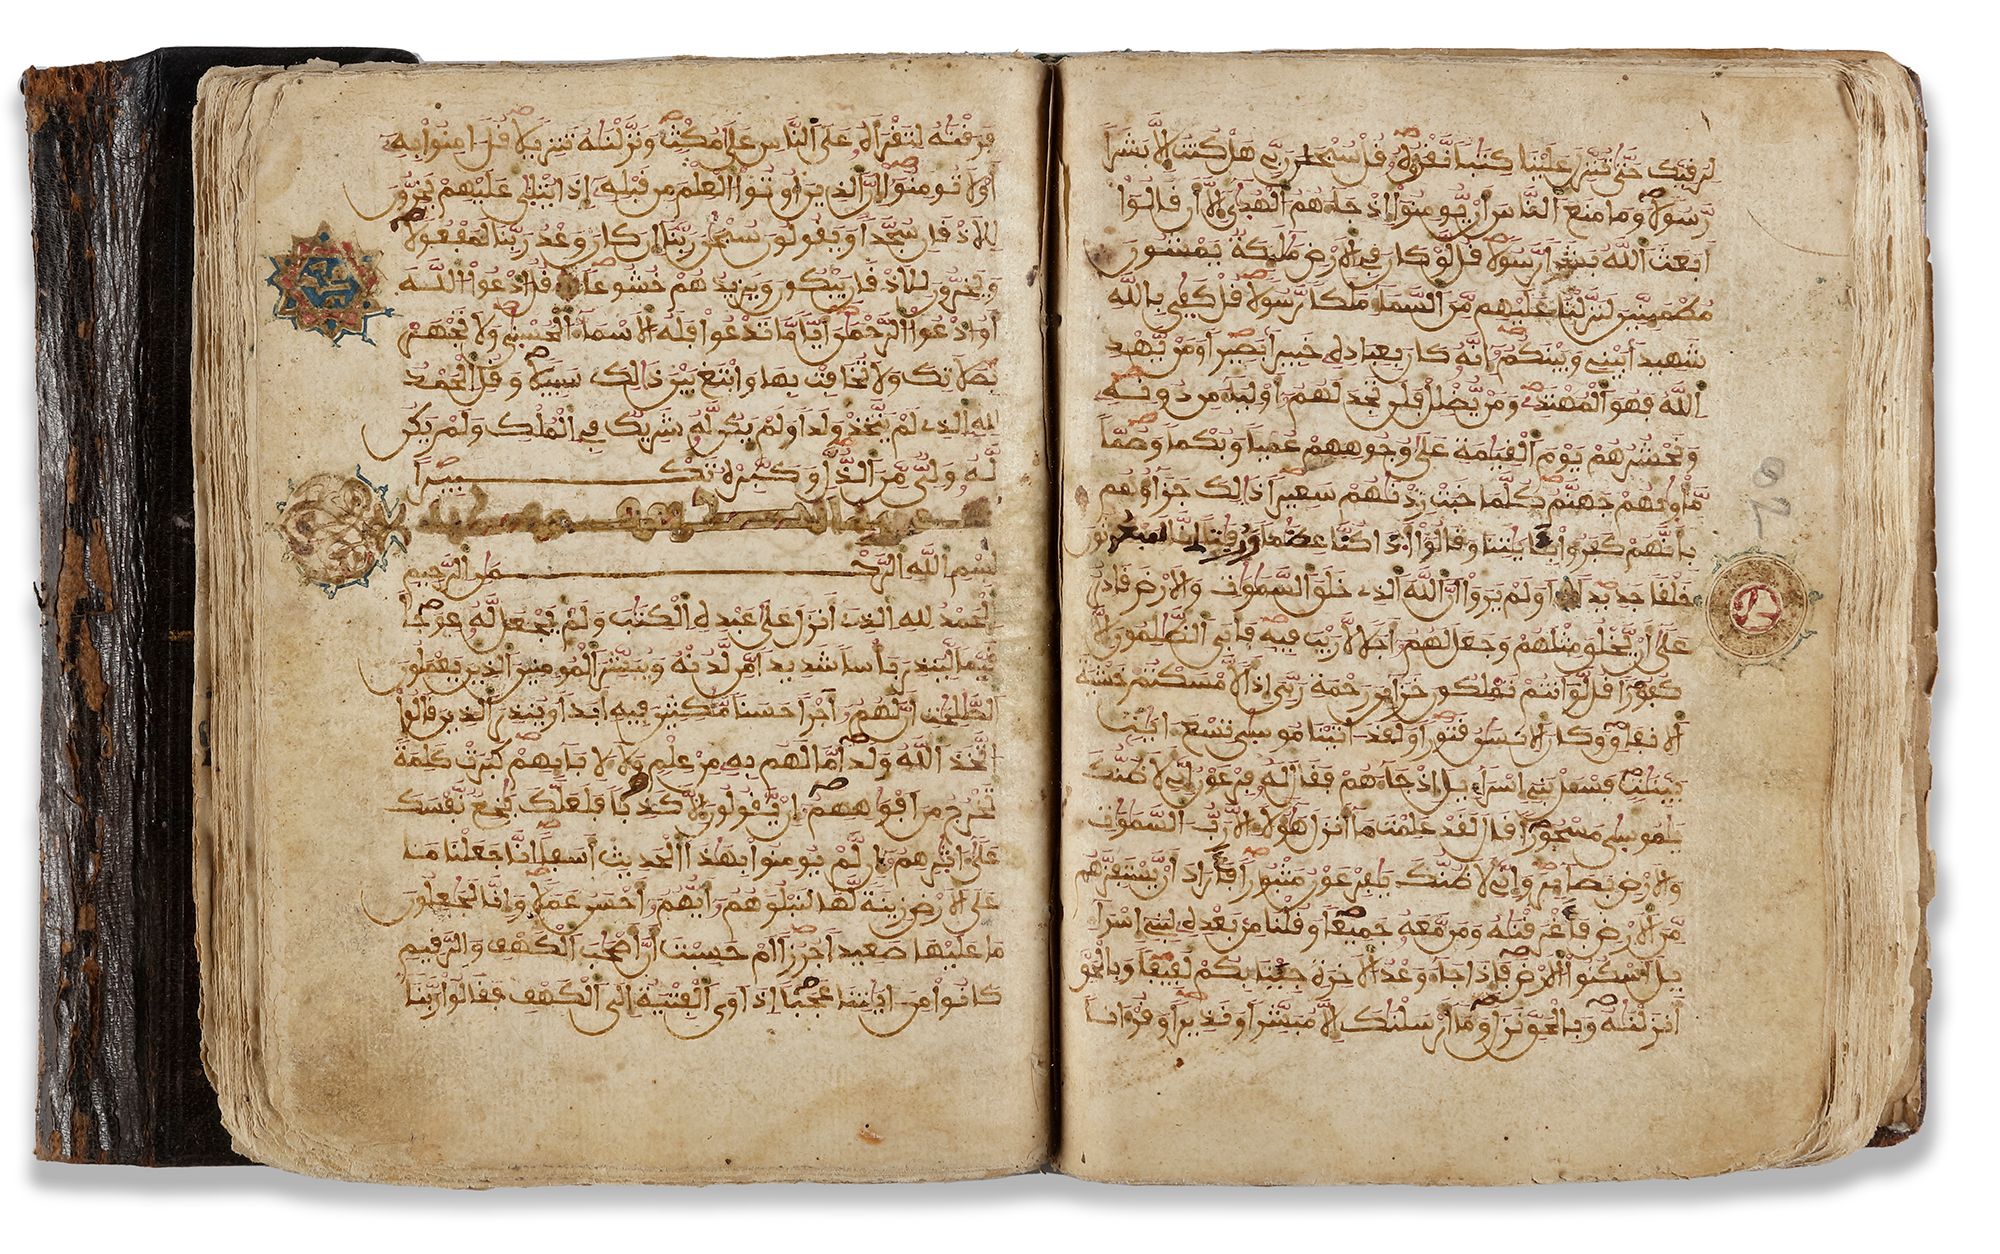 لرقيك حتى تنزل علينا كتبا نقرؤه قل سبحن ربي هل كنت الا بشرا
رسولا وما منع الناس ان يومنوا اذ جاءهم الهدى الا ان قالوا
ابعث الله بشرا رسولا قل لو كان في الارض ملئكة يمشون
مطمينين لنزلنا عليهم من السماء ملكا رسولا قل كفى بالله
شهيدا بيني وبينكم انه كان بعباده خبيرا بصيرا ومن يهد
الله فهو المهتد ومن يضلل فلن تجد لهم اولياء من دونه
ونحشرهم يوم القيمة على وجوههم عميا وبكما وصما
ماويهم جهنم كلما خبت زدنهم سعيرا ذلك جزاؤهم
بانهم كفروا بايتنا وقالوا اذا كنا عظما ورفتا انا لمبعوثون
خلقا جديدا اولم يروا ان الله الذي خلق السموت والارض قادر
على ان يخلق مثلهم وجعل لهم اجلا لا ريب فيه فابى الظلمون الا
كفورا قل لو انتم تملكون خزاين رحمة ربي اذا لامسكتم خشية
الانفاق وكان الانسن قتورا ولقد اتينا موسى تسع ايت
بينت فسل بني اسراءيل اذ جاءهم فقال له فرعون اني لاظنك
يموسى مسحورا قال لقد علمت ما انزل هؤلاء الا رب السموت
والارض بصاير واني لاظنك يفرعون مثبورا فاراد ان يستفزهم
من الارض فاغرقنه ومن معه جميعا وقلنا من بعده لبني اسرا
يل اسكنوا الارض فاذا جاء وعد الاخرة جينا بكم لفيفا وبالحق
انزلنه وبالحق نزل وما ارسلنك الا مبشرا ونذيرا وقرانا
فرقنه لتقراه على الناس على مكث ونزلنه تنزيلا قل امنوا به
اولا تومنوا ان الذين اوتوا العلم من قبله اذا يتلى عليهم يخرون
للاذقان سجدا ويقولون سبحن ربنا ان كان وعد ربنا لمفعولا
ويخرون للاذقان يبكون ويزيدهم خشوعا قل ادعوا الله
او ادعوا الرحمن ايا ما تدعوا فله الاسماء الحسنى ولا تجهر
بصلاتك ولا تخافت بها وابتغ بين ذلك سبيلا وقل الحمد
لله الذي لم يتخذ ولدا ولم يكن له شريك في الملك ولم يكن
له ولي من الذل وكبره تكبيرا
بسم الله الرحمن الرحيم
الحمد لله الذي انزل على عبده الكتب ولم يجعل له عوجا
قيما لينذر باسا شديدا من لدنه ويبشر المومنين الذين يعملون
الصلحت ان لهم اجرا حسنا مكثين فيه ابدا وينذر الذين قالوا
اتخذ الله ولدا ما لهم به من علم ولا لابايهم كبرت كلمة
تخرج من افوههم ان يقولون الا كذبا فلعلك بخع نفسك
على اثرهم ان لم يومنوا بهذا الحديث اسفا انا جعلنا ما
على الارض زينة لها لنبلوهم ايهم احسن عملا وانا لجعلون
ما عليها صعيدا جرزا ام حسبت ان اصحب الكهف والرقيم
كانوا من ايتنا عجبا اذ اوى الفتية الى الكهف فقالوا ربنا